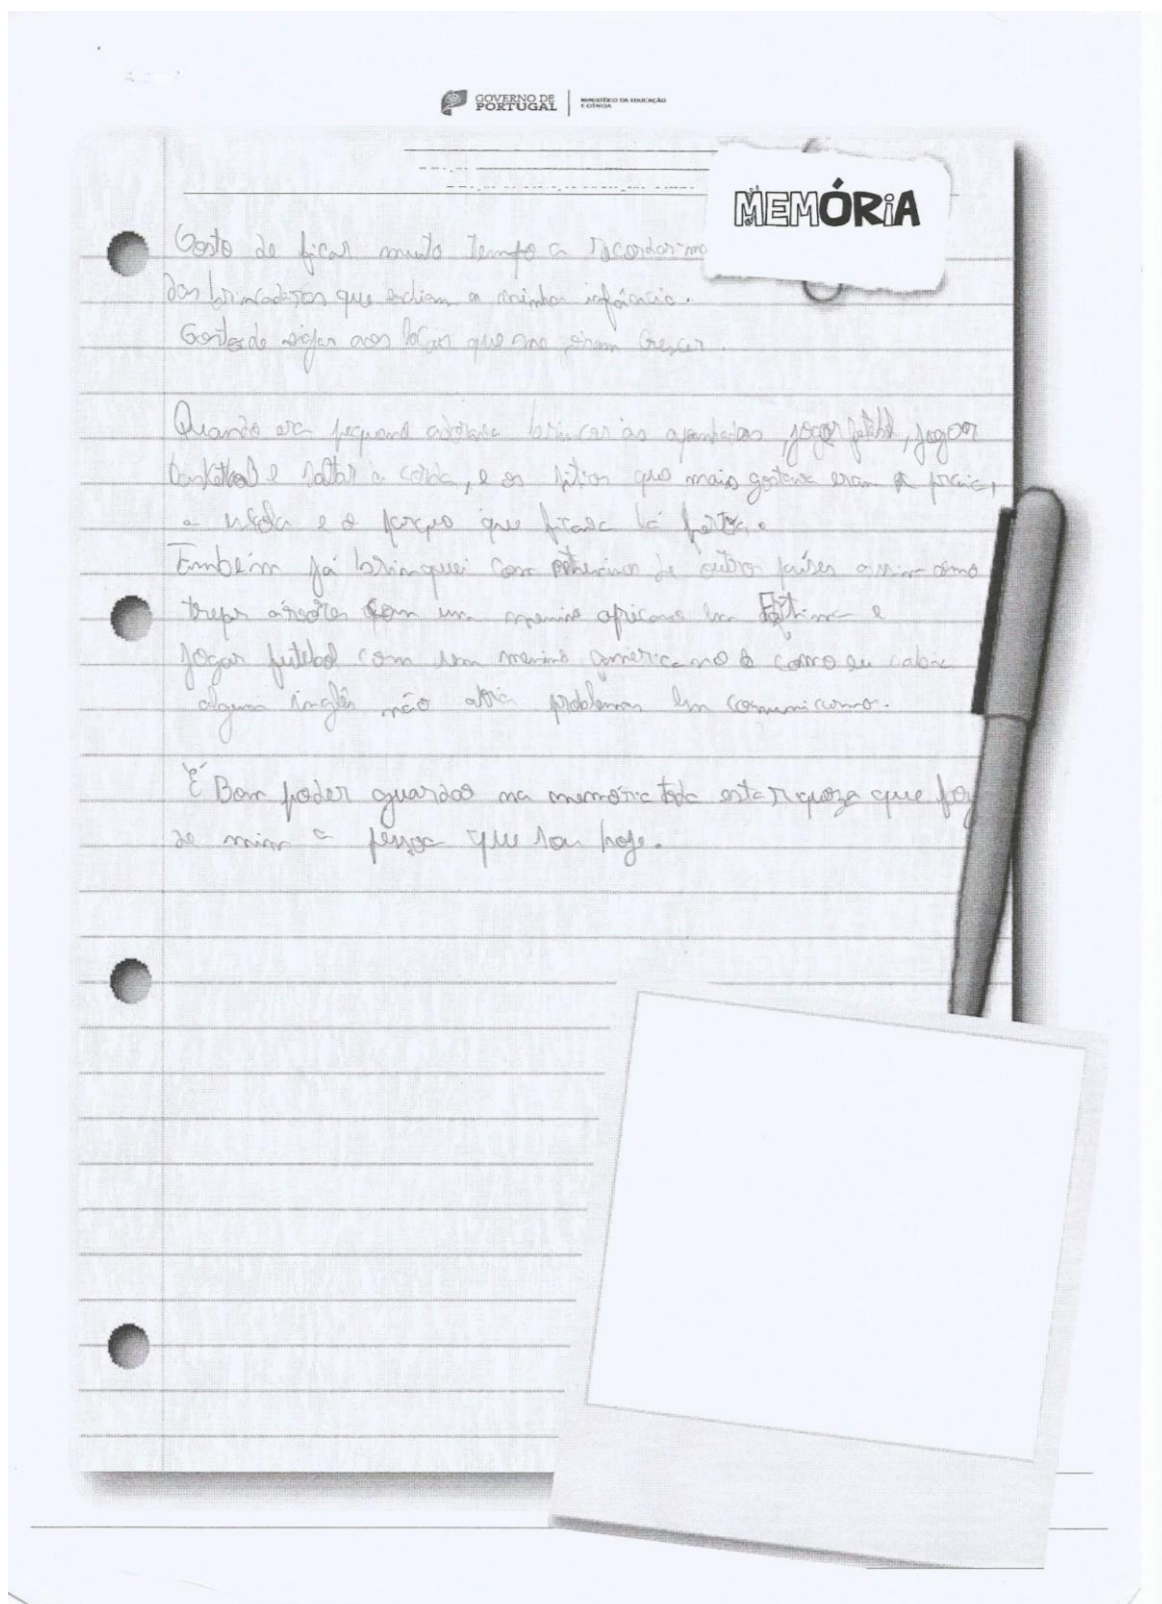 GOVERNO DE
PORTUGAL
MINISTÉRIO DA EDUCAÇÃO
E CIÊNCIA
MEMÓRiA
Gosto de ficar muito tempo a recordar-me
das brincadeiras que enchiam a minha infância.
Gosto de viajar aos locais que me viram crescer.
Quando era pequeno adorava brincar às apanhadas, jogar futebol, jogar
basketbol e saltar à corda, e os sítios que mais gostava eram a praia,
a escola e o parque que ficava lá perto.
Também já brinquei com meninos de outros países assim como
trepar árvores com um menino africano em Fátima e
jogar futebol com um menino americano e como eu sabia
algum inglês não avia problemas em comunicarmo.
É Bom poder guardar na memória toda esta riqueza que faz
de mim a pessoa que sou hoje.